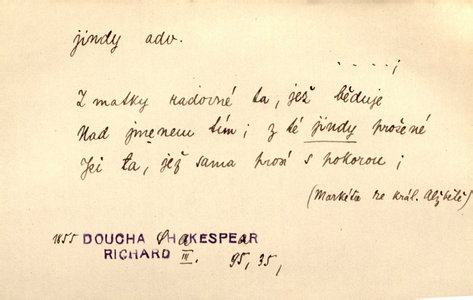 jindy adv.
. . . . ;
Z matky radovné ta, jež běduje
Nad jmenem tím; z té jindy prošené
Jsi ta, jež sama prosí s pokorou;
(Markéta ke král. Alžbětě)
1855 DOUCHA SHAKESPEAR
RICHARD III. 95, 35,